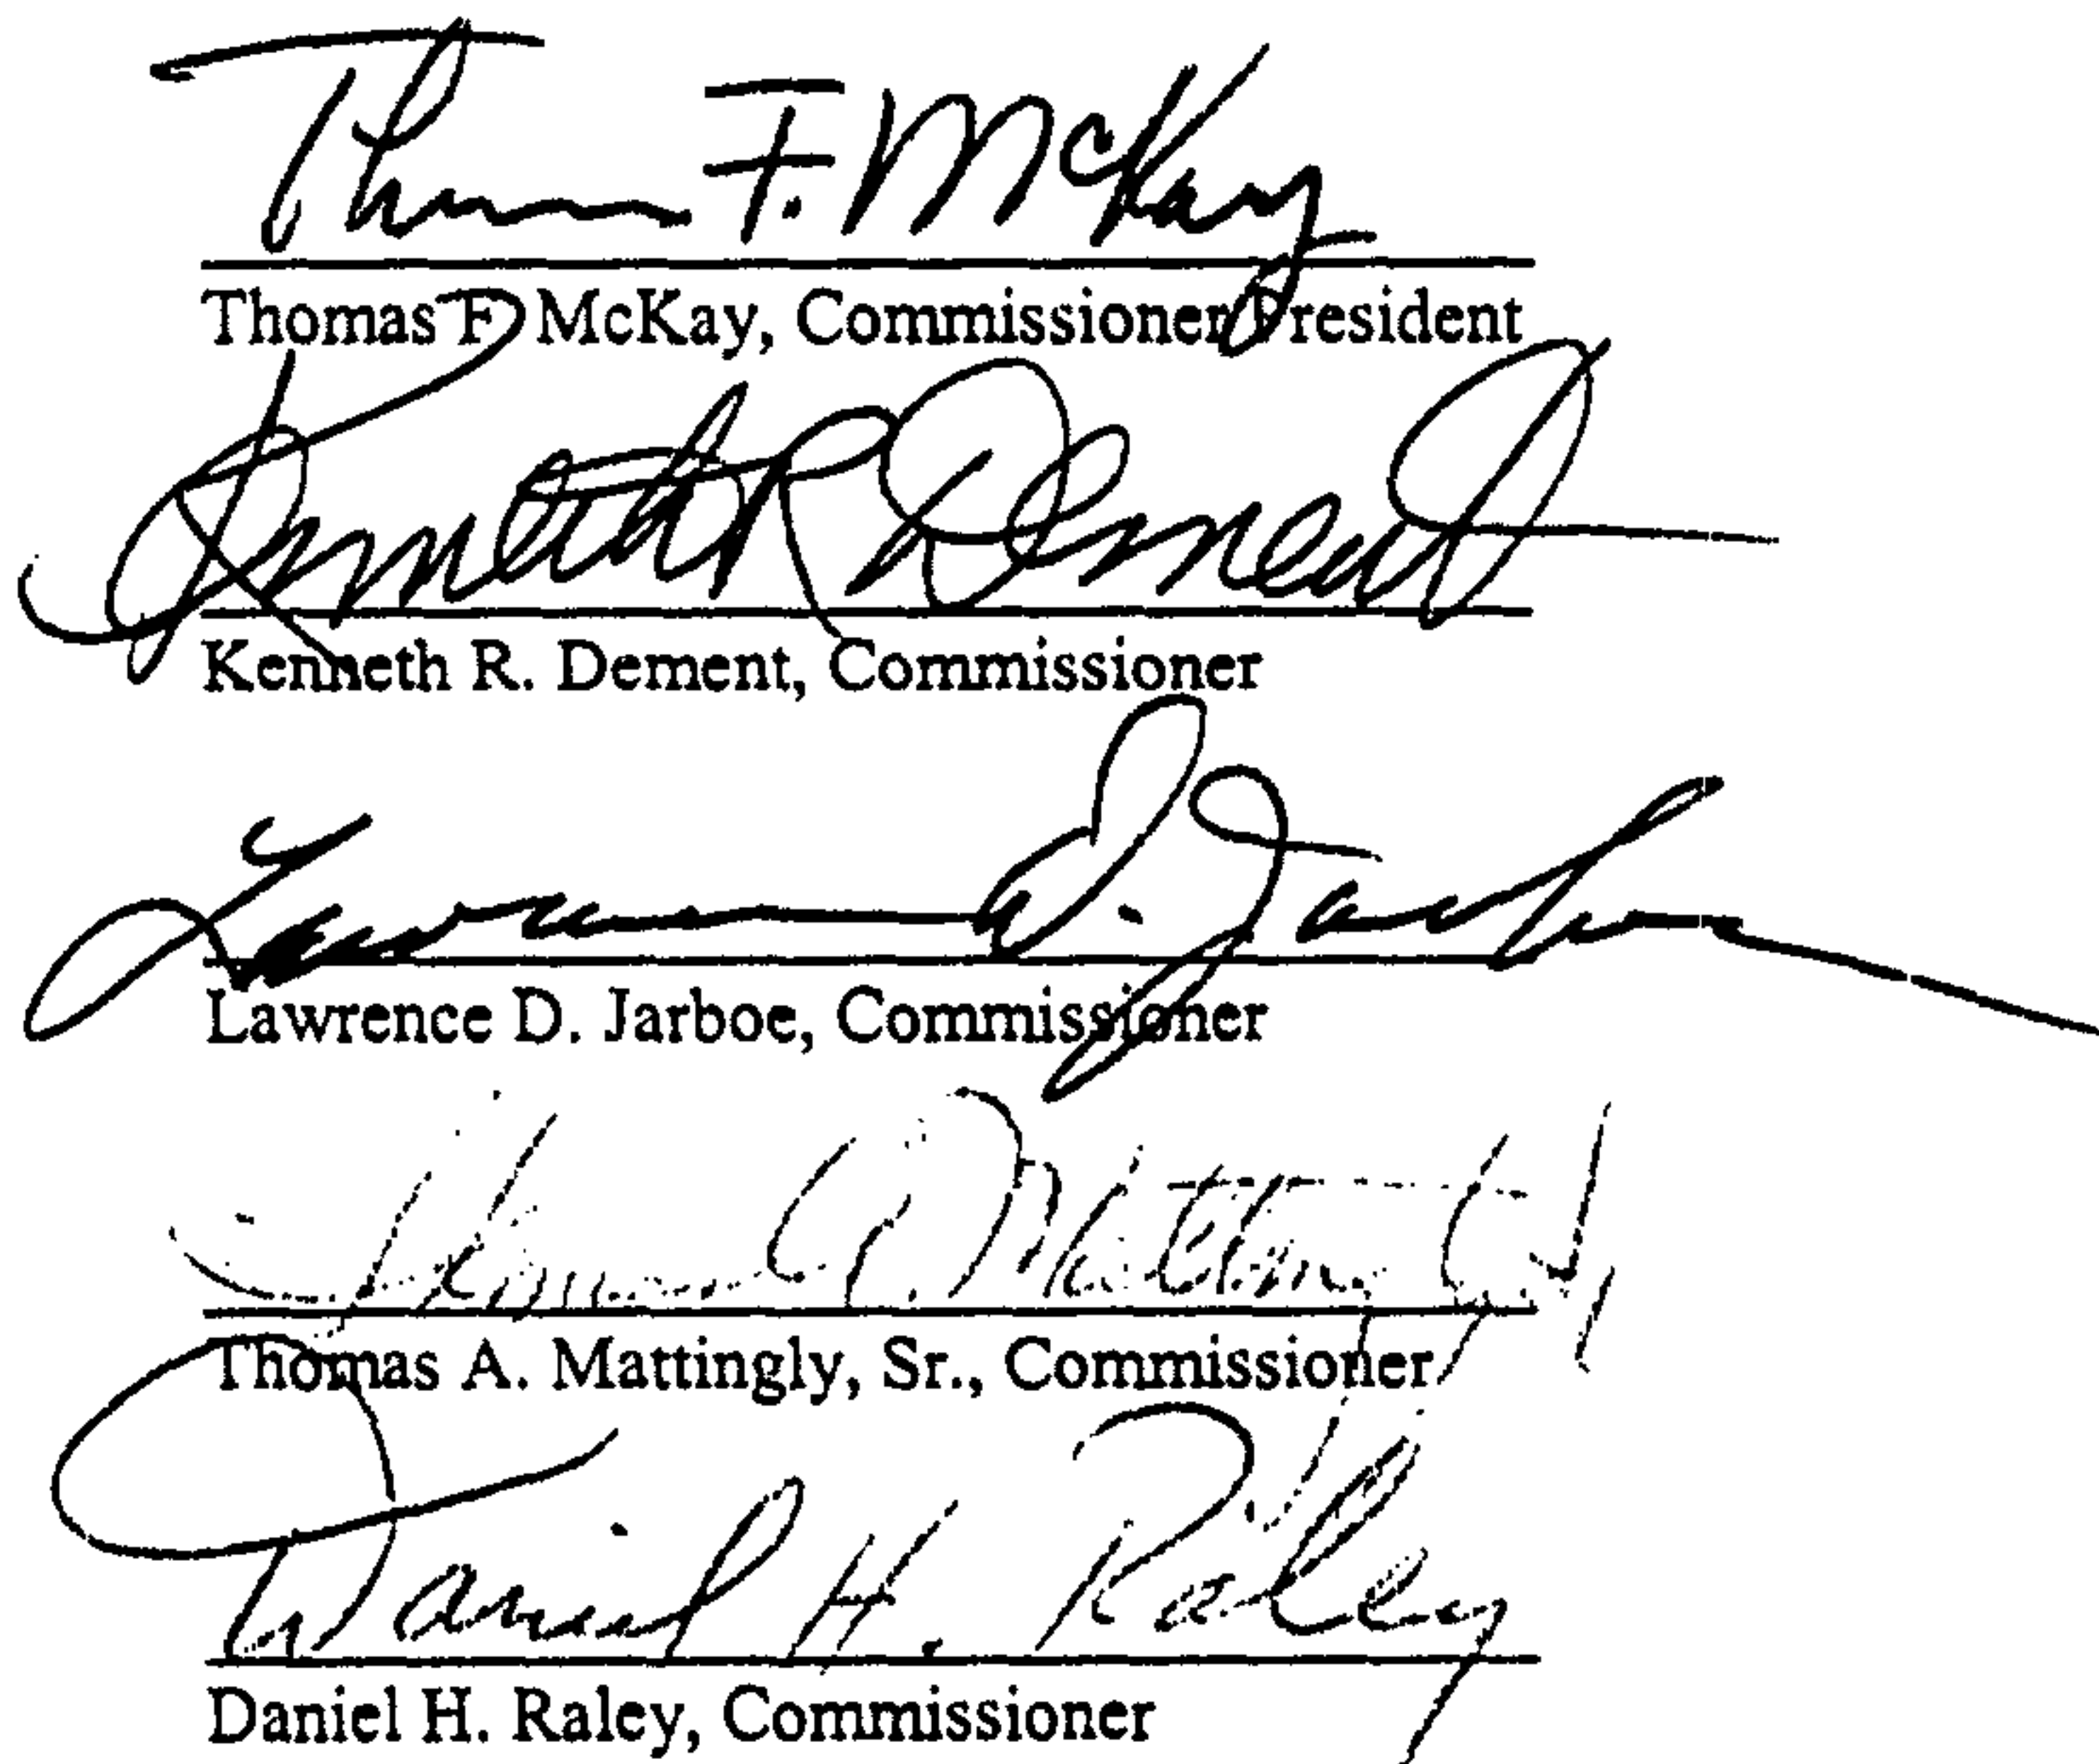 Thomas F. McKay
Thomas F McKay, Commissioner President
Kenneth R Dement
Kenneth R. Dement, Commissioner
Lawrence D. Jarboe
Lawrence D. Jarboe, Commissioner
Thomas A. Mattingly, Sr.
Thomas A. Mattingly, Sr., Commissioner
Daniel H. Raley
Daniel H. Raley, Commissioner